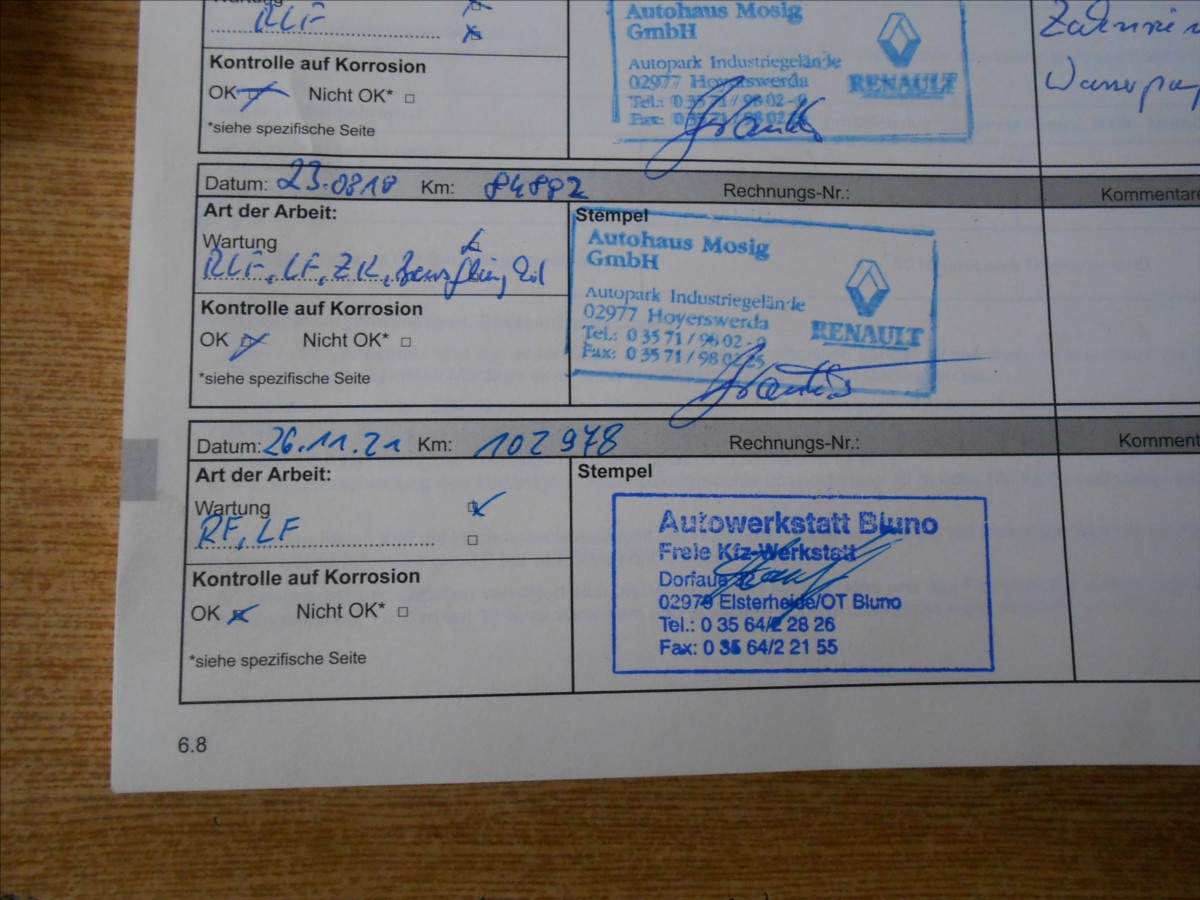 Wartung
RLF
Kontrolle auf Korrosion
OK Nicht OK*
*siehe spezifische Seite
Autohaus Mosig
GmbH
Autopark Industriegelände
02977 Hoyerswerda
Tel.: 0 35 71 / 98 02 - 0
Fax: 0 35 71 / 98 02 25
RENAULT
Zahnrie
Wasserpu
Datum: 23.0818 Km: 84882 Rechnungs-Nr.: Kommentare
Art der Arbeit:
Wartung
RLF, LF, ZK,
Kontrolle auf Korrosion
OK Nicht OK*
*siehe spezifische Seite
Stempel
Autohaus Mosig
GmbH
Autopark Industriegelände
02977 Hoyerswerda
Tel.: 0 35 71 / 98 02 - 0
Fax: 0 35 71 / 98 02 25
RENAULT
Datum: 26.11.21 Km: 102978 Rechnungs-Nr.: Komment
Art der Arbeit:
Wartung
RF, LF
Kontrolle auf Korrosion
OK Nicht OK*
*siehe spezifische Seite
Stempel
Autowerkstatt Bluno
Freie Kfz-Werkstatt
Dorfaue 22
02979 Elsterheide/OT Bluno
Tel.: 0 35 64/2 28 26
Fax: 0 35 64/2 21 55
6.8